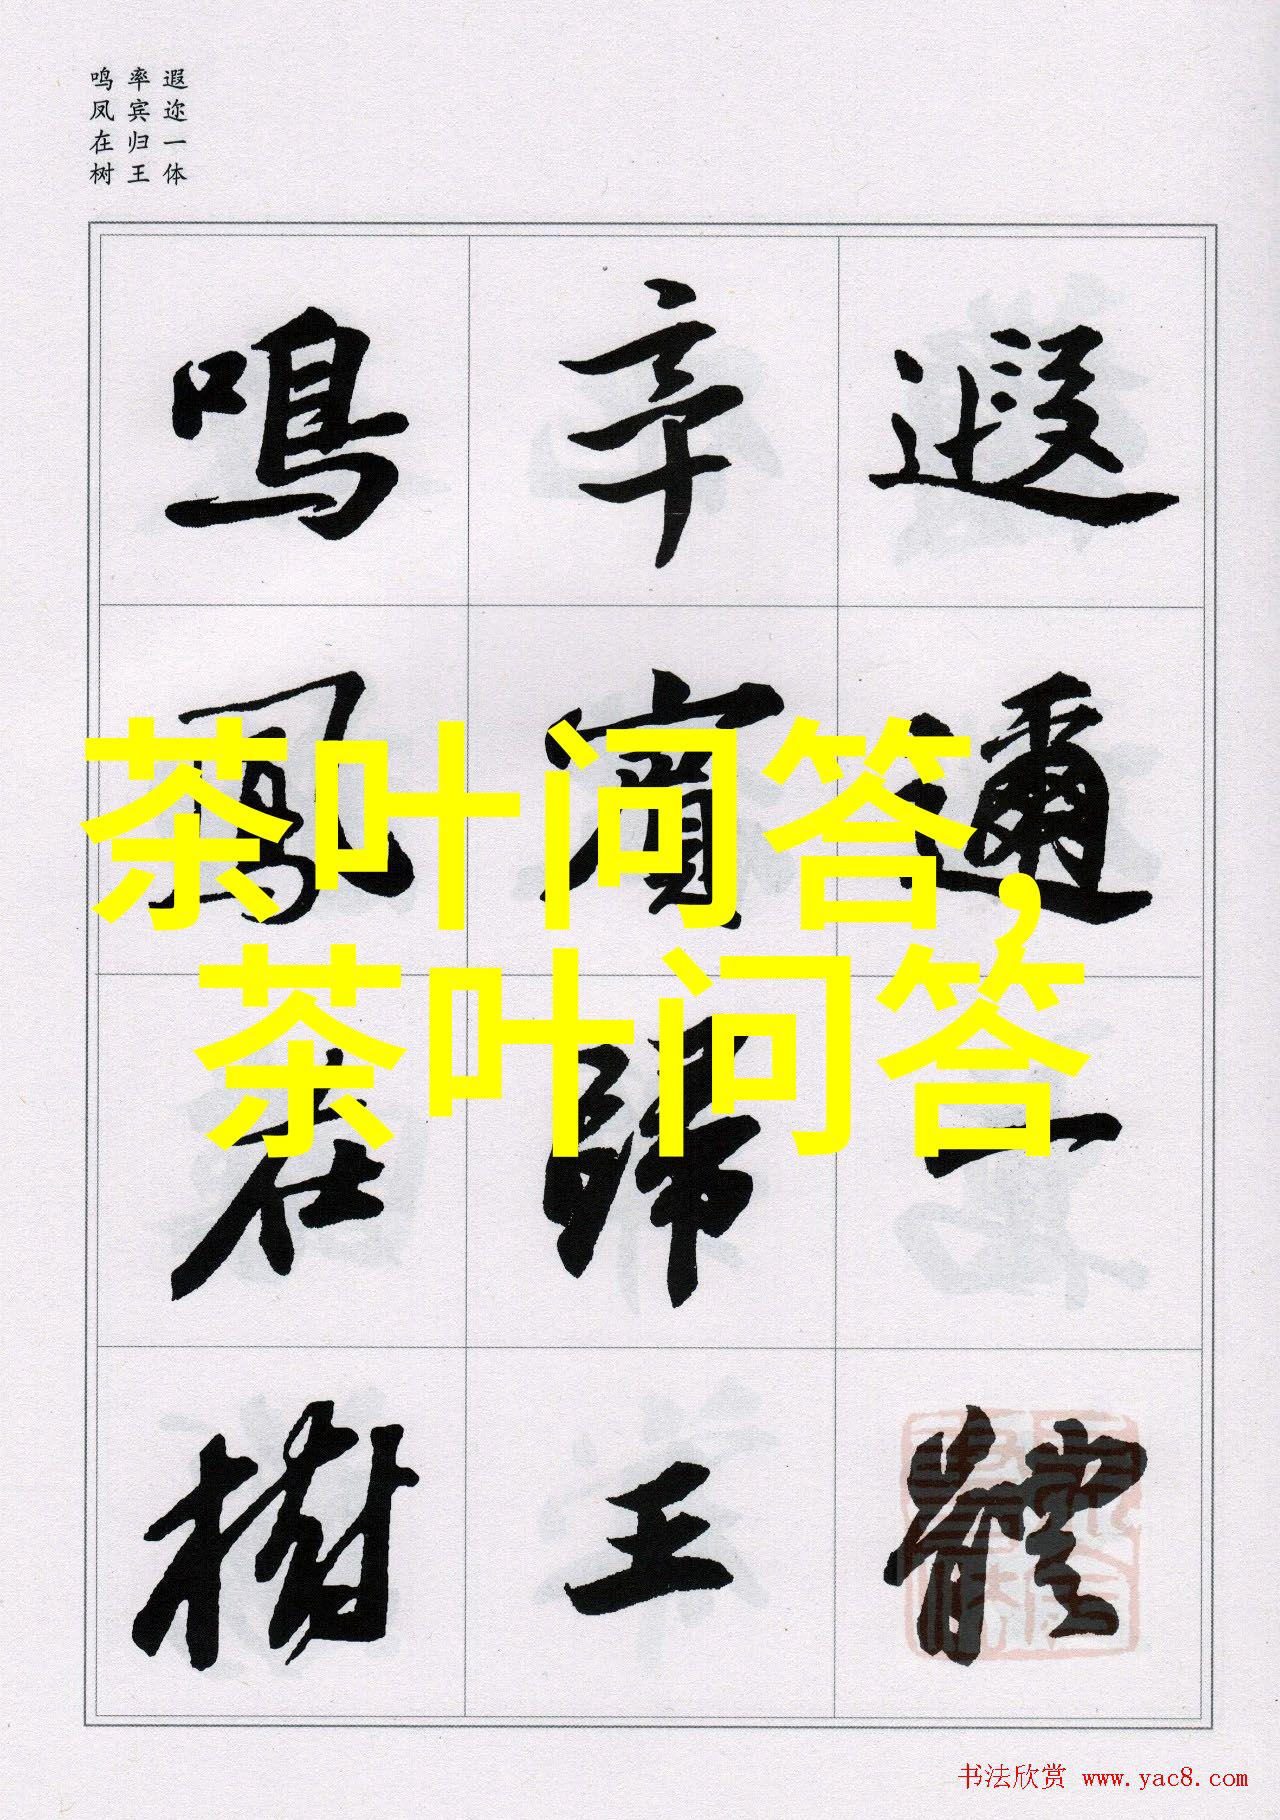 遐迩一体
率宾归王
鸣凤在树
遐邇一體
率賓歸王
鳴鳳在樹
茶叶问答,
茶叶问答
书法欣赏 www.yac8.com